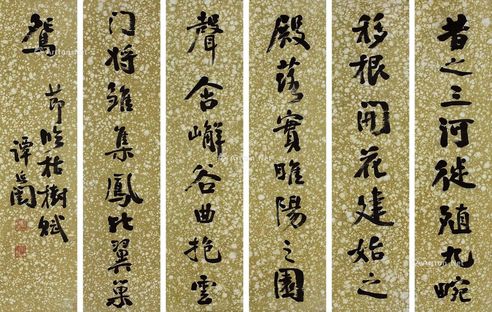 昔之三河徙殖九畹
移根開花建始之
殿落實睢陽之園
聲含嶰谷曲抱雲
门将雏集鳳比翼巢
鴛
節临枯樹賦
谭延闿